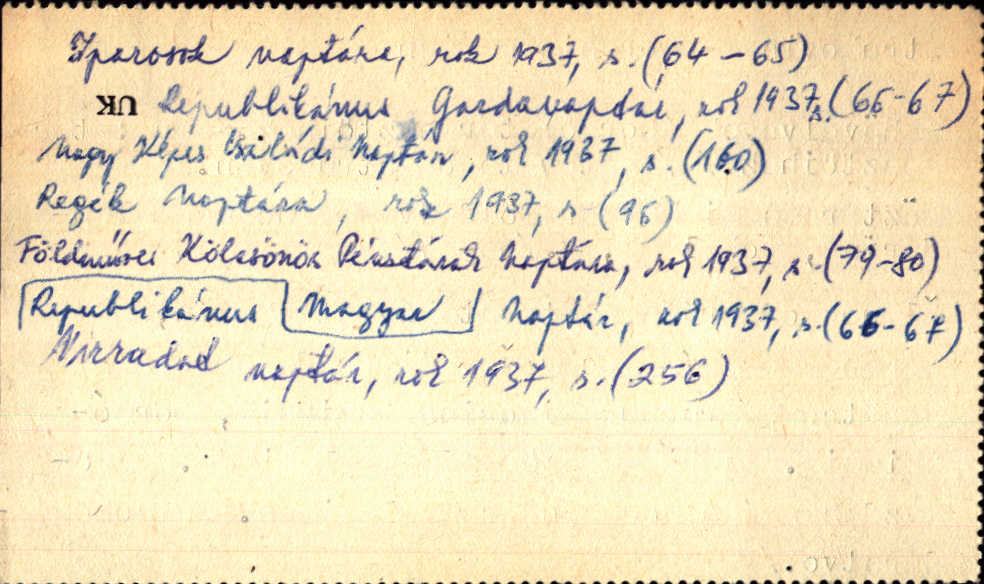 Iparosok naptára, rok 1937, s. (64-65)
UK Republikánus Gazdanaptár, rok 1937, s. (66-67)
Nagy Képes Családi Naptár, rok 1937, s. (160)
Regék Naptára, rok 1937, s. (96)
Földműves Kölcsönös Pénztárak Naptára, rok 1937, s. (79-80)
Republikánus Magyar Naptár, rok 1937, s. (66-67)
Virradat naptár, rok 1937, s. (256)